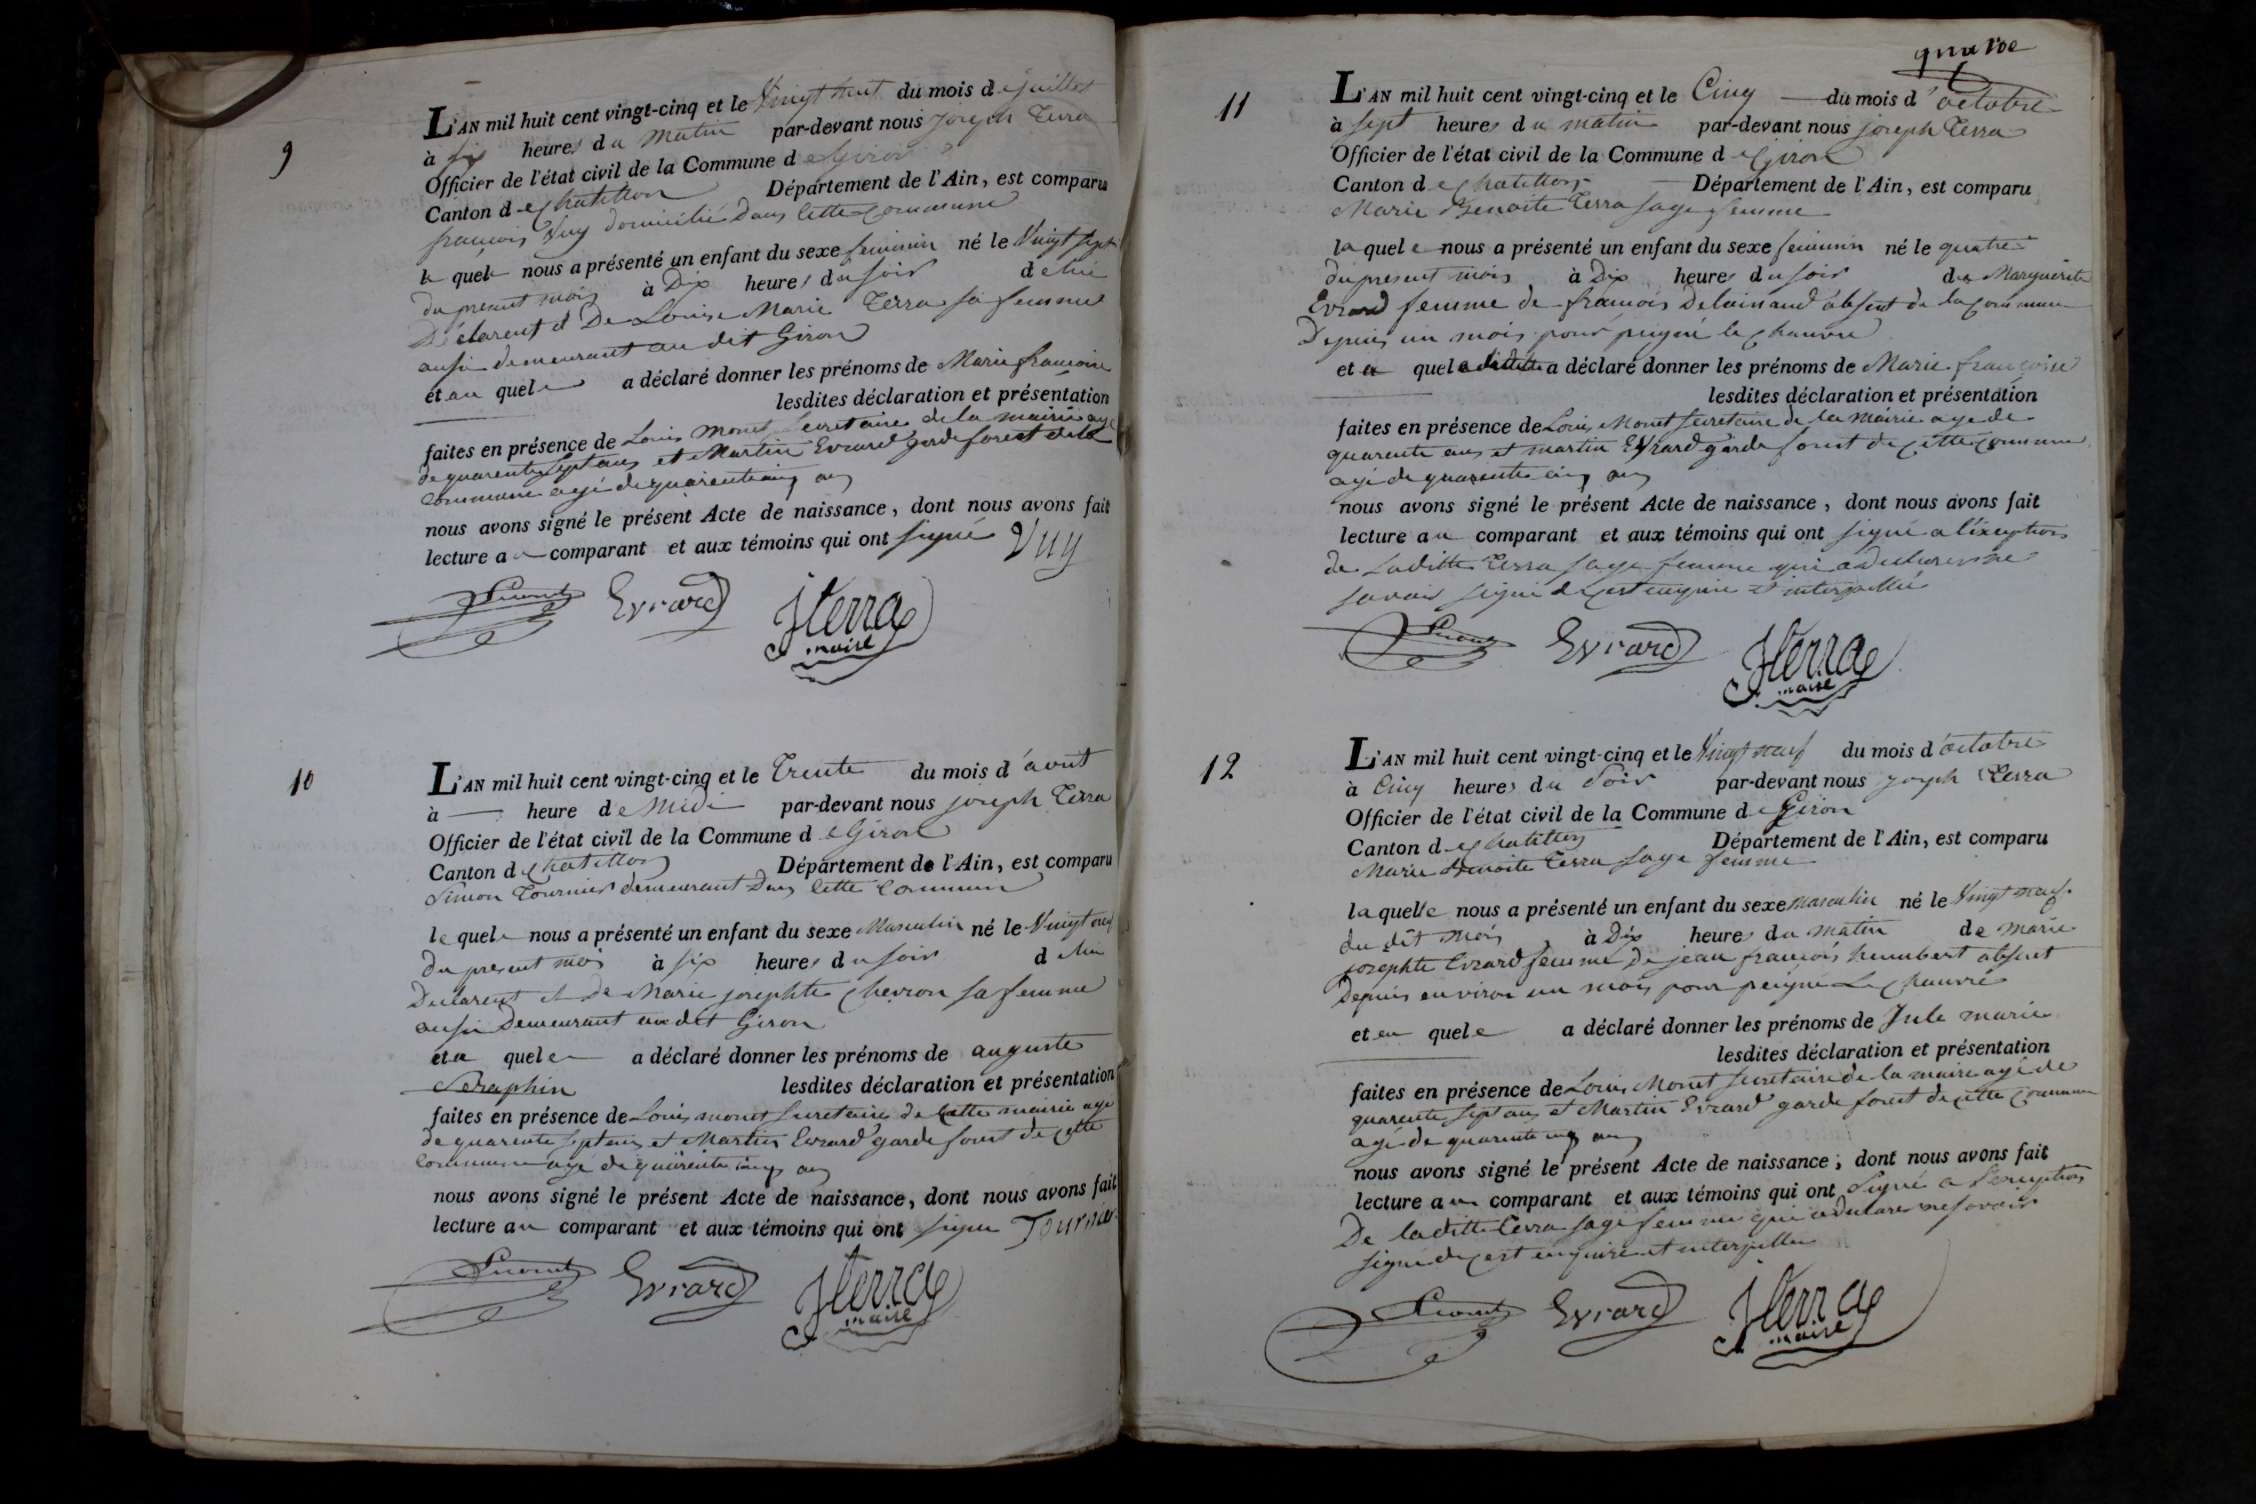 9
L'AN mil huit cent vingt-cinq et le Vingt huit du mois de juillet
à six heures du matin par-devant nous joseph Terra
Officier de l'état civil de la Commune de Giron
Canton de chatillon Département de l'Ain, est comparu
françois Vuy domicilié dans cette commune
le quel nous a présenté un enfant du sexe feminin né le Vingt sept
du present mois à Dix heures du soir de lui
Déclarent et De Louise Marie Terra sa femme
aussi demeurant au dit Giron
et au quel a déclaré donner les prénoms de Marie françoise
lesdites déclaration et présentation
faites en présence de Louis monet Secretaire de la mairie agé
de quarente sept ans et Martin Evrard garde forest de la
commune agé de quarente cinq ans
nous avons signé le présent Acte de naissance, dont nous avons fait
lecture au comparant et aux témoins qui ont signé Vuy
Lmonet Evrard JTerra
maire
10
L'AN mil huit cent vingt-cinq et le Trente du mois d'aout
à heure de Midi par-devant nous joseph Terra
Officier de l'état civil de la Commune de Giron
Canton de chatillon Département de l'Ain, est comparu
Simon Tournier demeurant Dans cette commune
le quel nous a présenté un enfant du sexe Masculin né le Vingt neuf
Du present mois à six heures du soir de lui
Declarent et De Marie josephte chevron sa femme
aussi Demeurant au dit Giron
et au quel a déclaré donner les prénoms de auguste
Seraphin lesdites déclaration et présentation
faites en présence de Louis monet secretaire de cette mairie agé
de quarente sept ans et Martin Evrard garde forest de cette
commune agé de quarente cinq ans
nous avons signé le présent Acte de naissance, dont nous avons fait
lecture au comparant et aux témoins qui ont signé Tournier
Lmonet Evrard JTerra
maire
quatre
11
L'AN mil huit cent vingt-cinq et le Cinq du mois d'octobre
à sept heures du matin par-devant nous joseph Terra
Officier de l'état civil de la Commune de Giron
Canton de chatillon Département de l'Ain, est comparu
Marie Benoite Terra sage femme
la quele nous a présenté un enfant du sexe feminin né le quatre
du present mois à Dix heures du soir de Marguerite
Evrard femme de françois Delainaud absent de la commune
Depuis un mois pour peigné le chanvre
et a quel ditte a déclaré donner les prénoms de Marie françoise
lesdites déclaration et présentation
faites en présence de Louis Monet secretaire de la mairie agé de
quarente ans et martin Evrard garde forest de cette commune
agé de quarente cinq ans
nous avons signé le présent Acte de naissance, dont nous avons fait
lecture au comparant et aux témoins qui ont signé a l'exception
de Laditte Terra sage femme qui a declaré ne
savoir signé de cest enquire et interpellé
Lmonet Evrard JTerra
maire
12
L'AN mil huit cent vingt-cinq et le Vingt neuf du mois d'octobre
à Cinq heures du Soir par-devant nous joseph Terra
Officier de l'état civil de la Commune de Giron
Canton de chatillon Département de l'Ain, est comparu
Marie Benoite Terra sage femme
la quelle nous a présenté un enfant du sexe masculin né le Vingt neuf
du dit mois à Dix heures du matin de marie
josephte Evrard femme De jean françois humbert absent
Depuis environ un mois pour peigné Le chanvre
et au quele a déclaré donner les prénoms de Jule marie
lesdites déclaration et présentation
faites en présence de Louis Monet secretaire de la maire agé de
quarente sept ans et Martin Evrard garde forest de cette commune
agé de quarente cinq ans
nous avons signé le présent Acte de naissance, dont nous avons fait
lecture au comparant et aux témoins qui ont Signé a l'exception
De laditte Terra sage femme qui a declaré ne savoir
signé de cest enquire et interpellé
Lmonet Evrard JTerra
maire